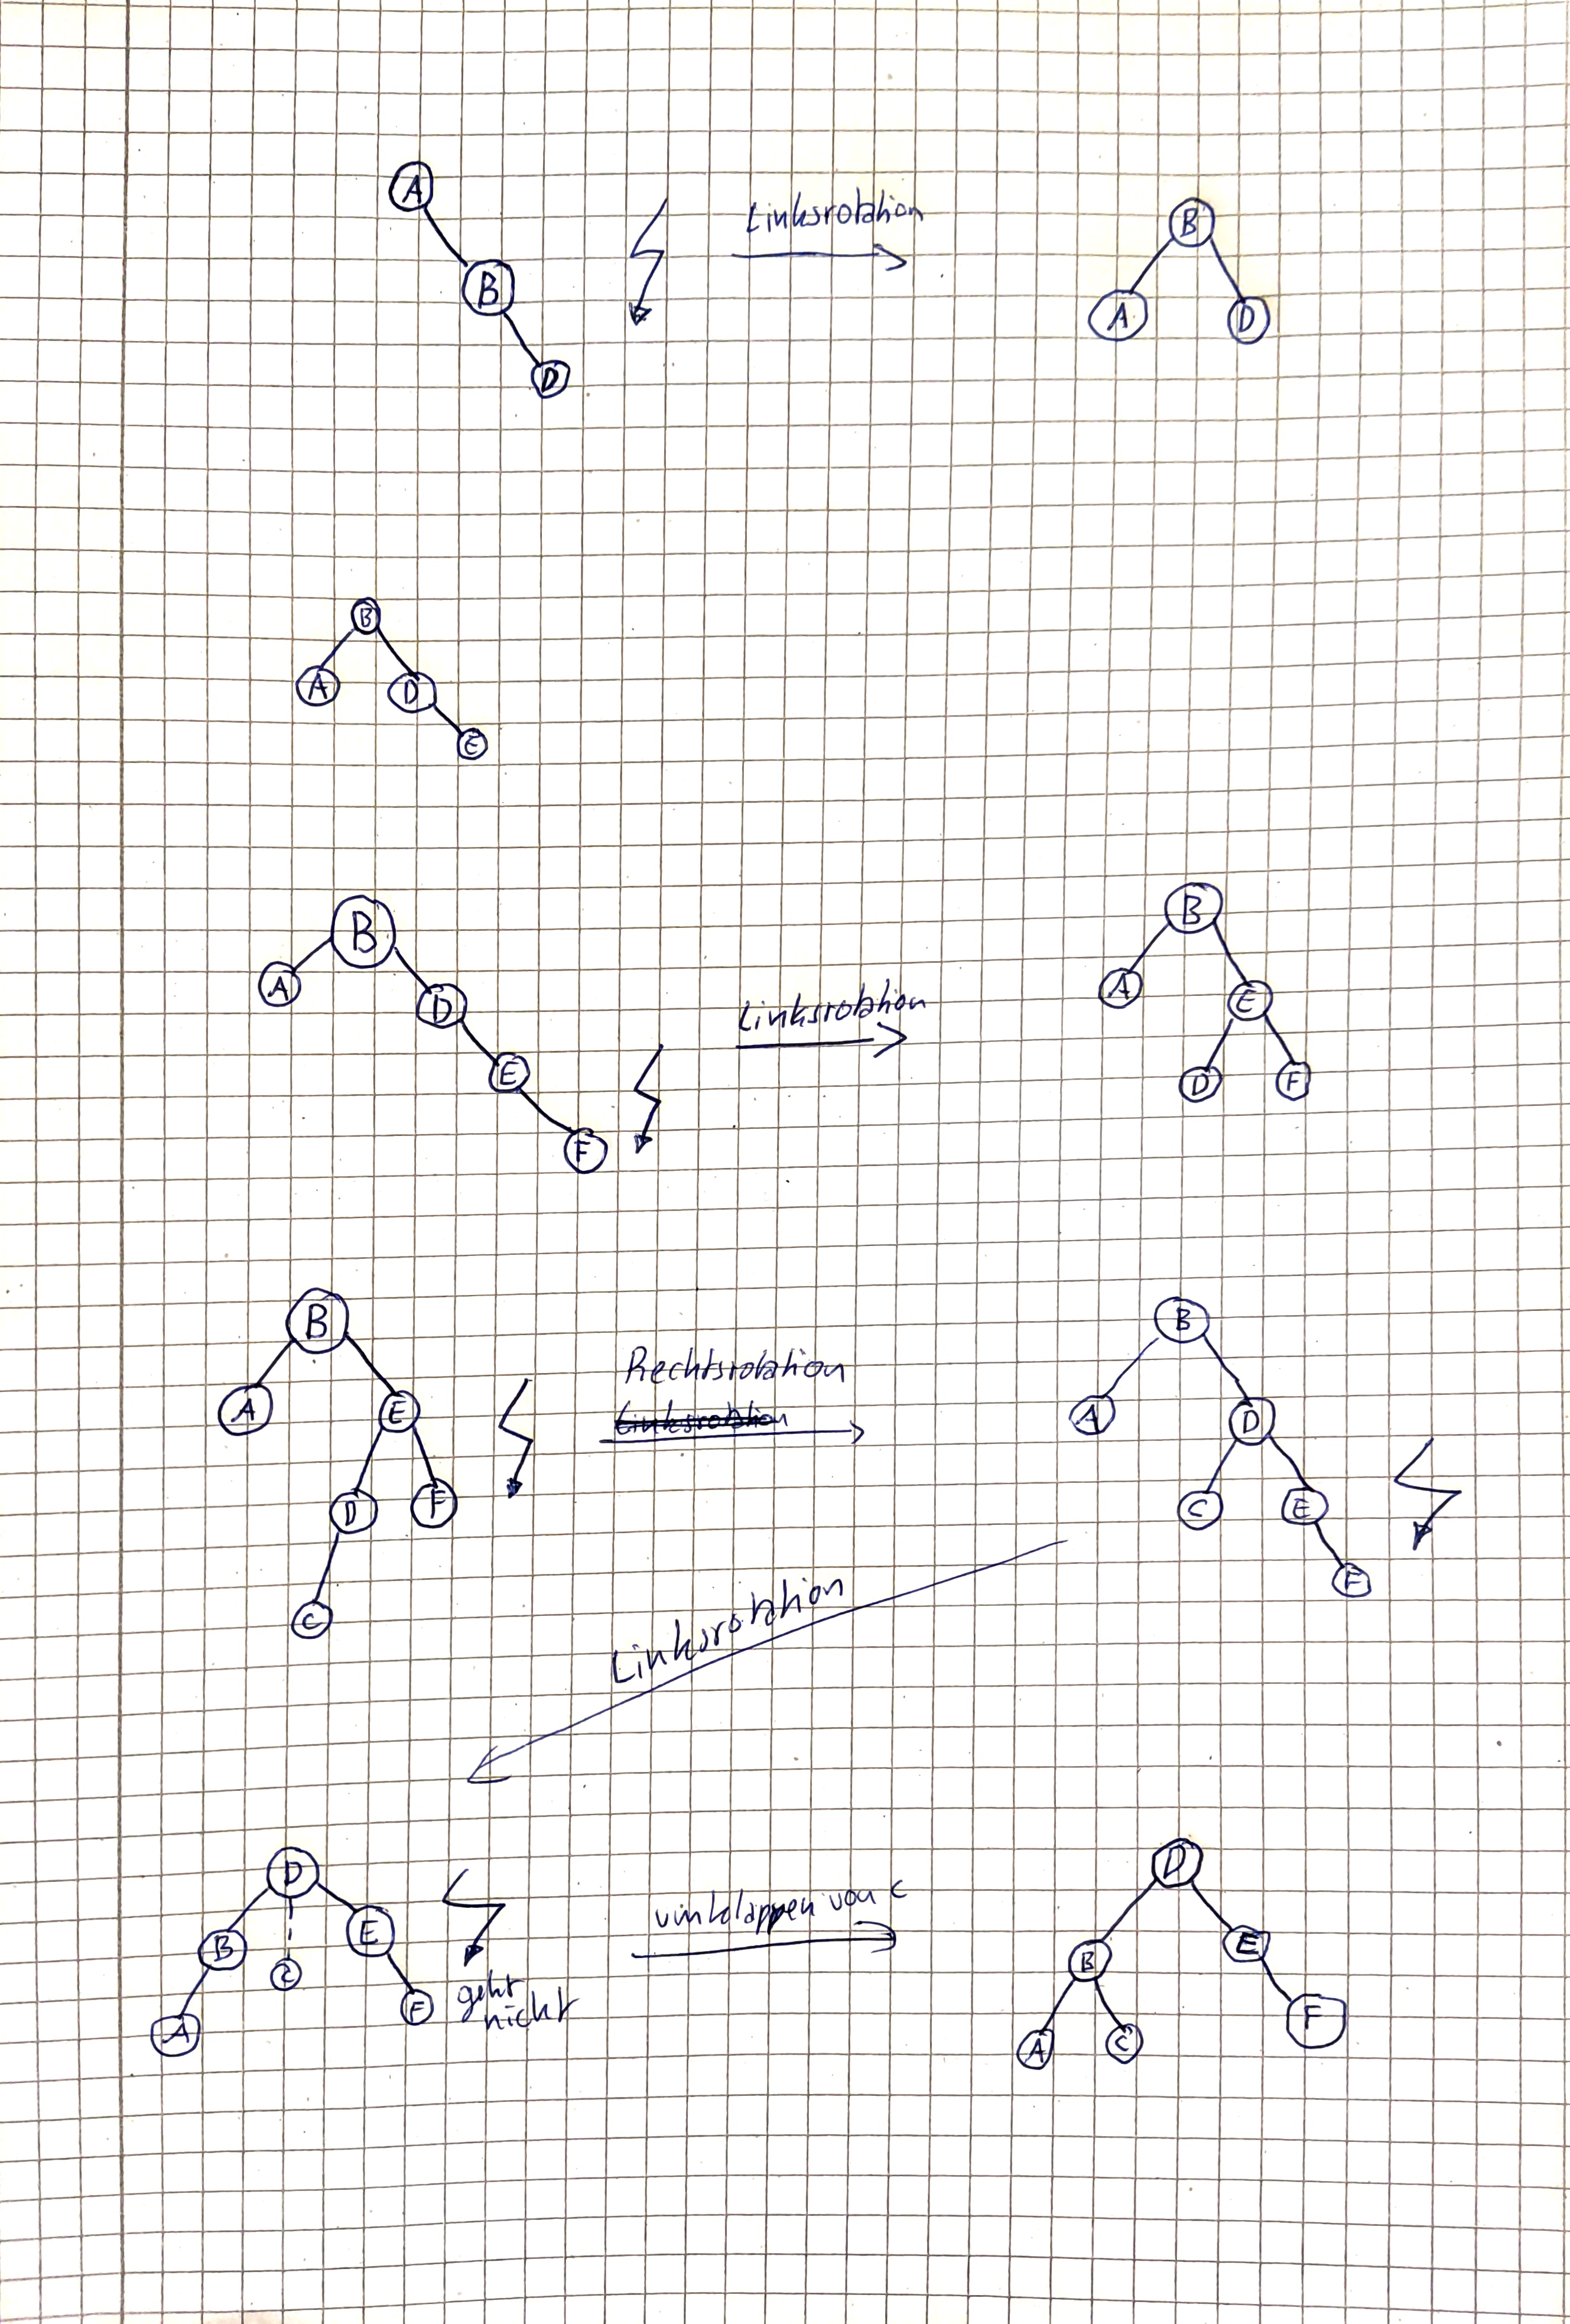 A
B
D
Linksrotation
B
A
D
B
A
D
E
B
A
D
E
F
Linksrotation
B
A
E
D
F
B
A
E
D
F
C
Rechtsrotation
Linksrotation
B
A
D
C
E
F
Linksrotation
D
B
E
C
A
F
geht
nicht
umklappen von C
D
B
E
A
C
F